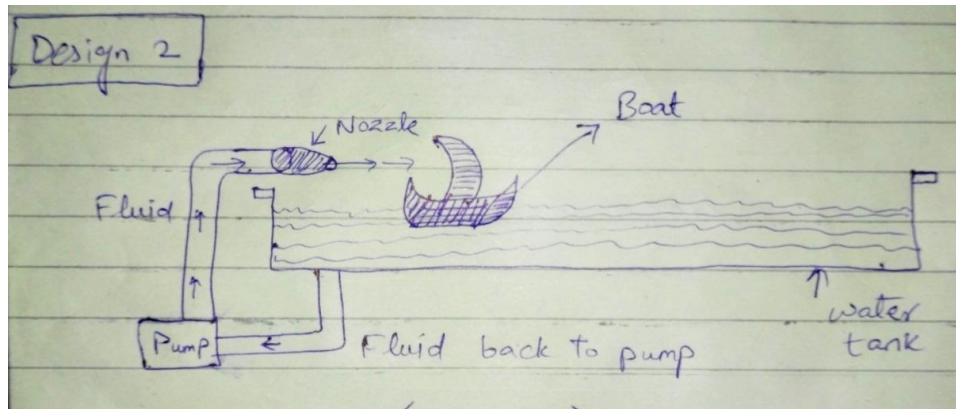 Design 2
Nozzle
Boat
Fluid
Pump
Fluid back to pump
water
tank